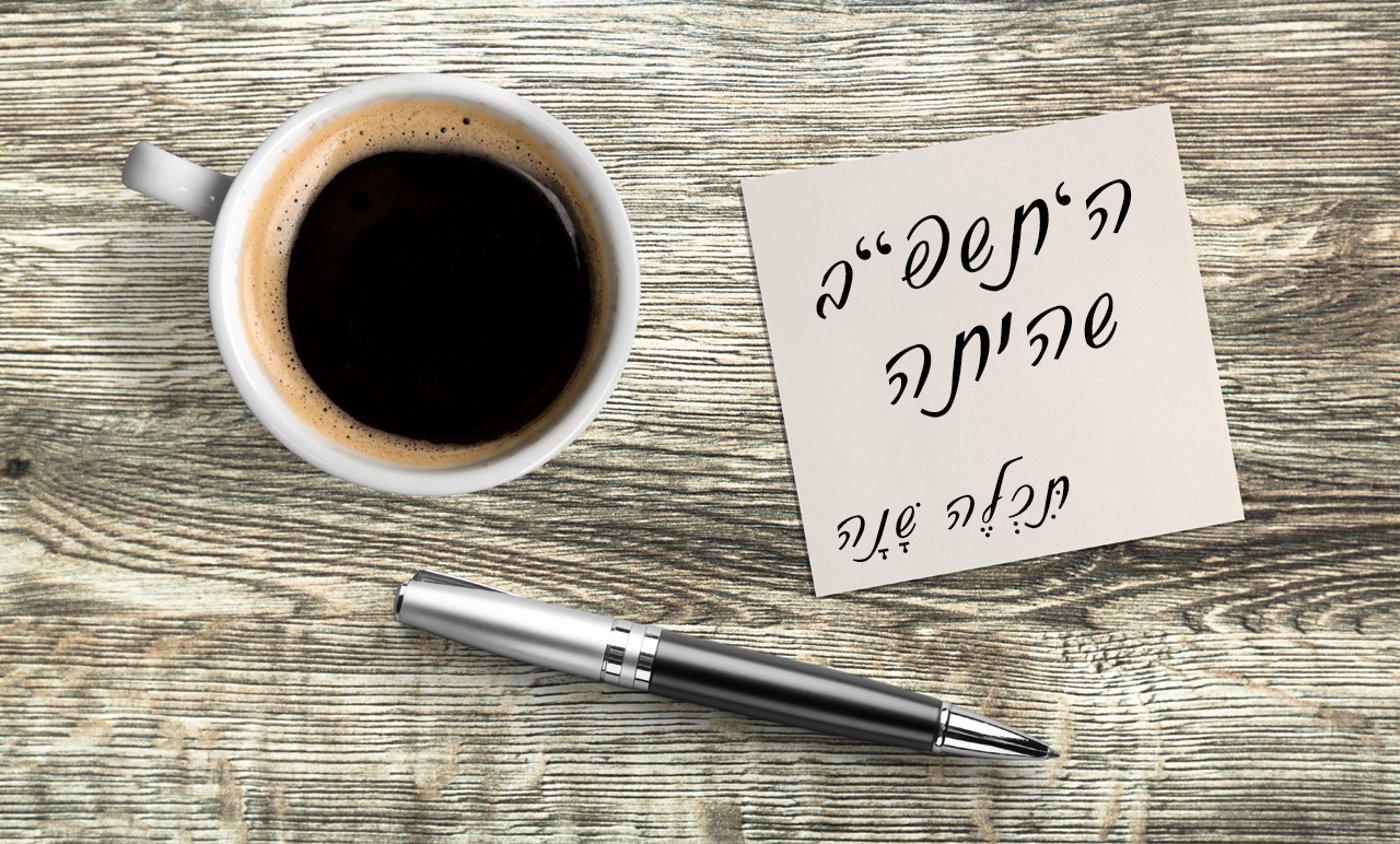 ה'תשפ"ב
שהיתה
תִּכְלֶה שָׁנָה